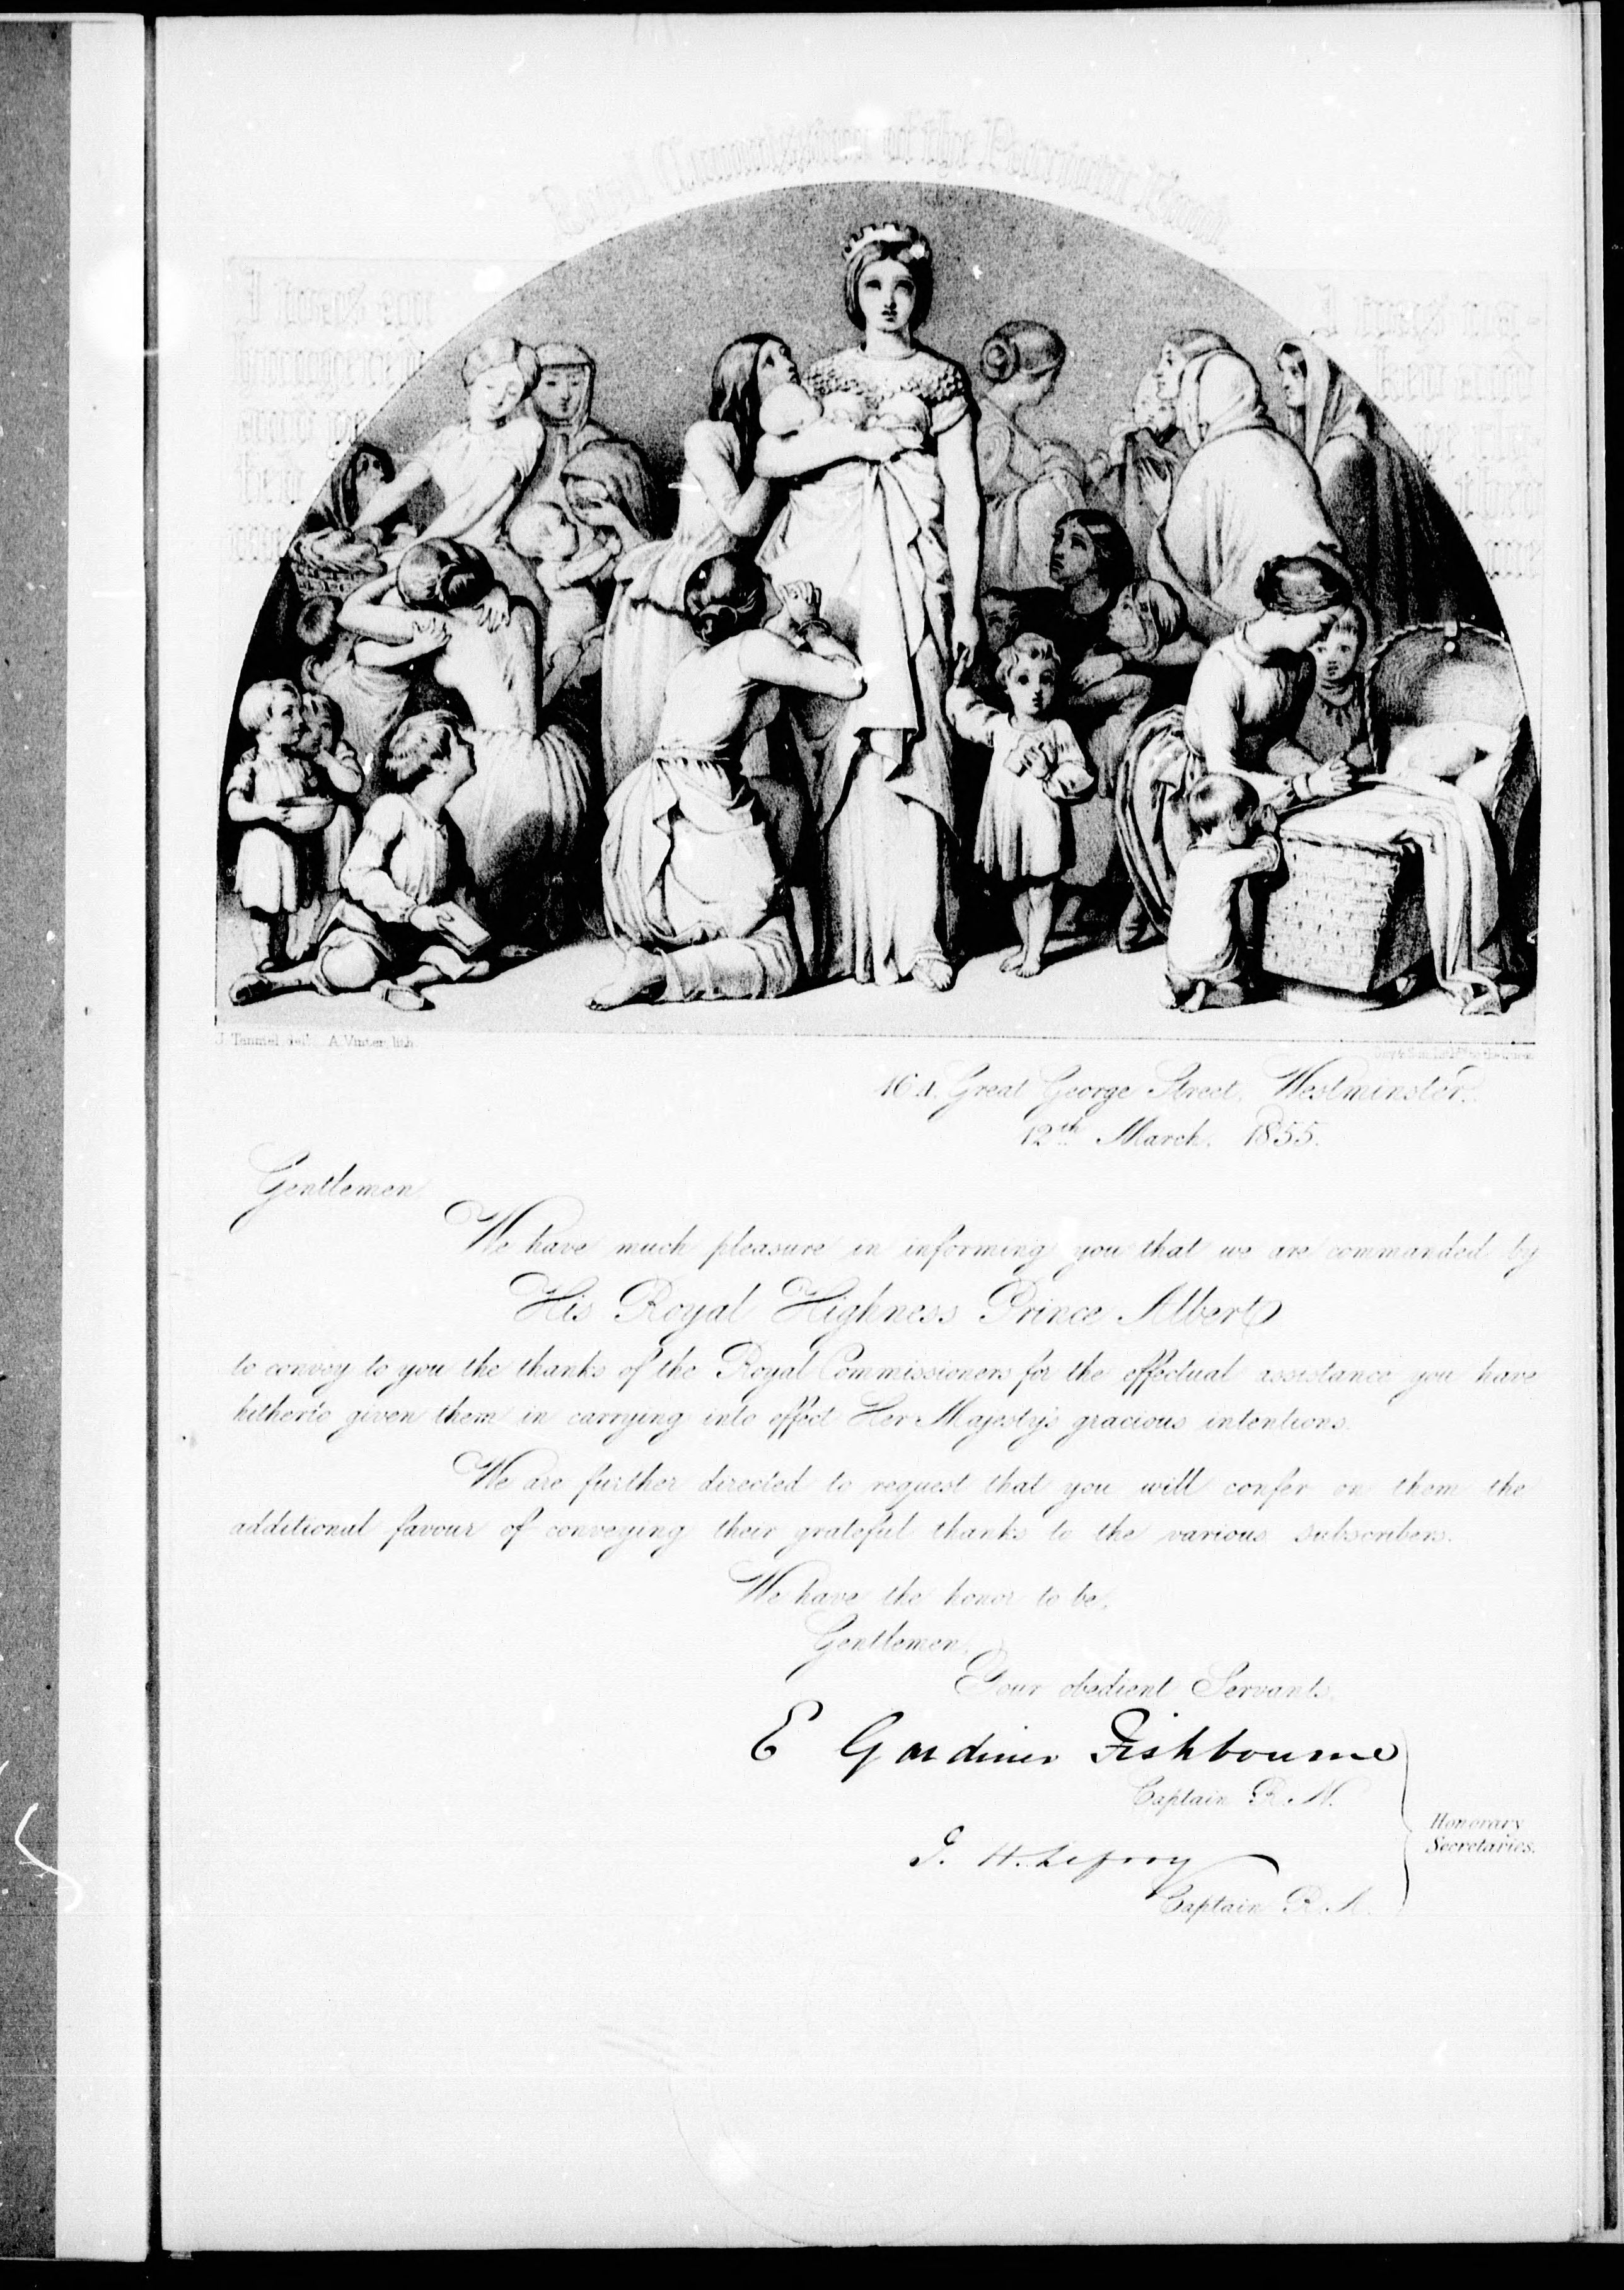 Royal Commission of the Patriotic Fund
I was an
hungred
J. Tenniel, del. A. Vinter, lith.
16 A. Great George Street, Westminster,
12th March, 1855.
Gentlemen
We have much pleasure in informing you that we are commanded by
His Royal Highness Prince Albert
to convey to you the thanks of the Royal Commissioners for the effectual assistance you have
hitherto given them in carrying into effect Her Majesty's gracious intentions.
We are further directed to request that you will confer on them the
additional favour of conveying their grateful thanks to the various subscribers.
We have the honor to be,
Gentlemen,
Your obedient Servants,
E Gardiner Fishbourne
Captain R.N.
J. H. Lefroy
Captain R.A.
Honorary
Secretaries.